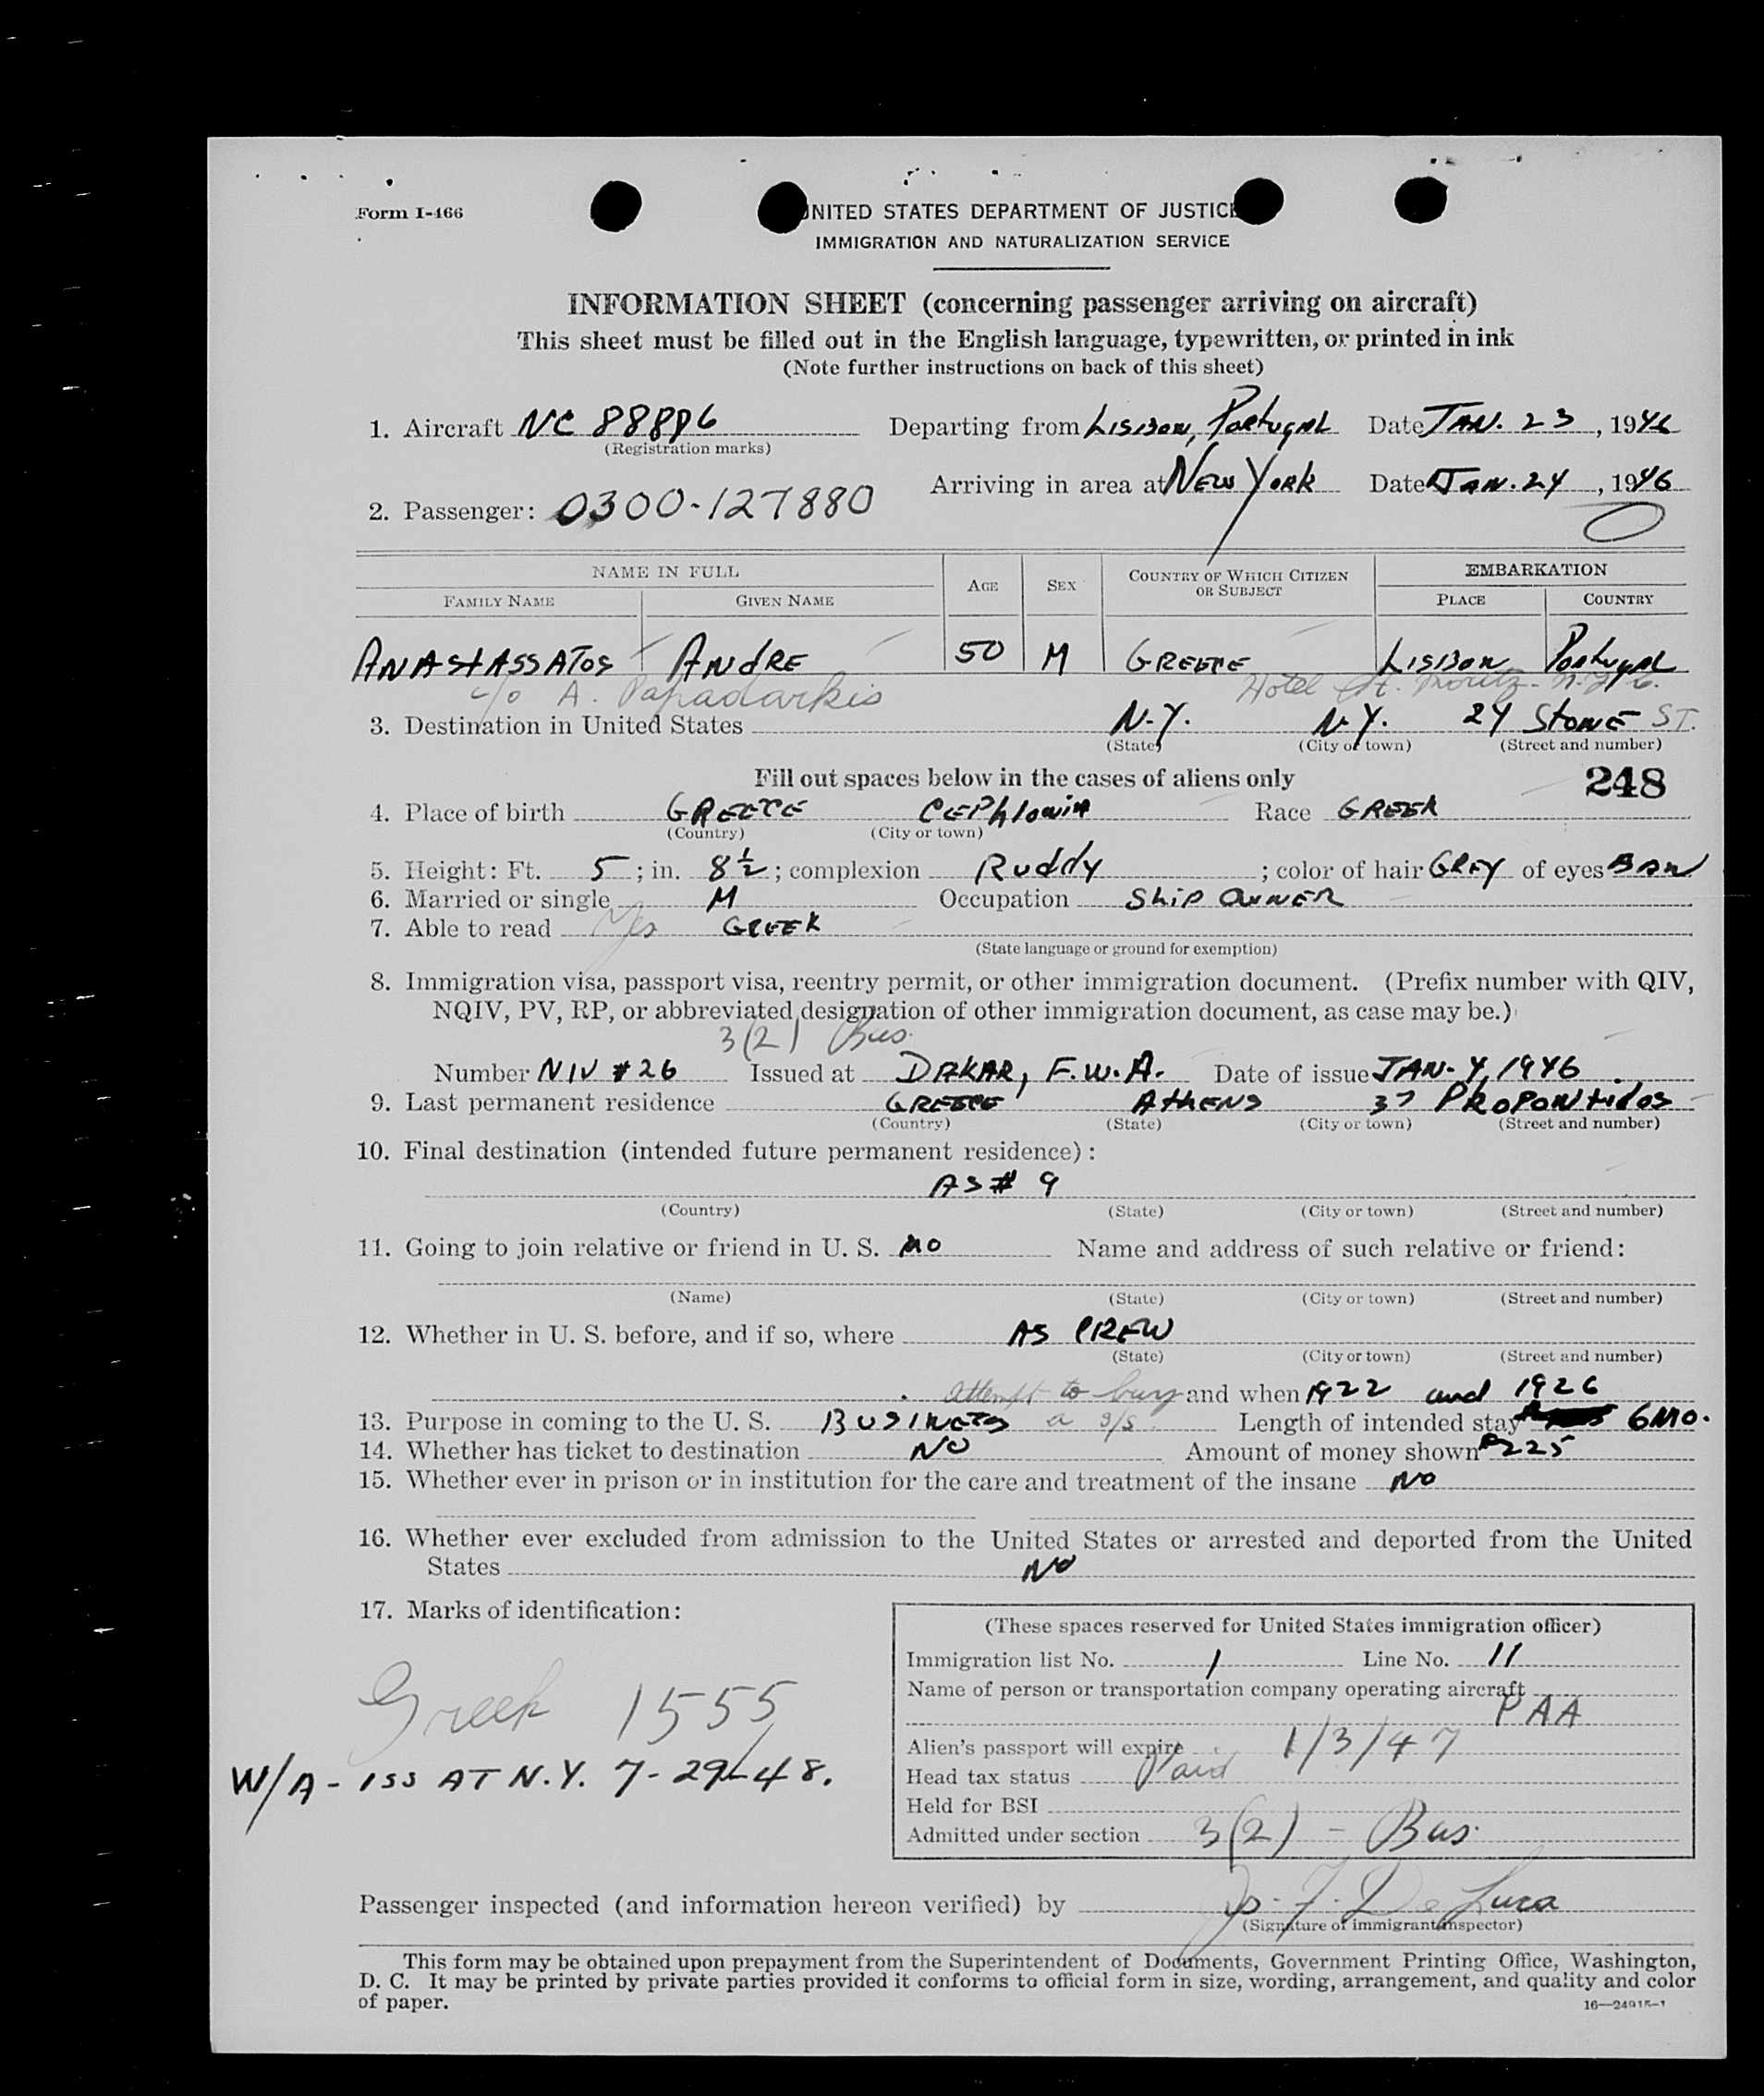 Form I-466
UNITED STATES DEPARTMENT OF JUSTICE
IMMIGRATION AND NATURALIZATION SERVICE
INFORMATION SHEET (concerning passenger arriving on aircraft)
This sheet must be filled out in the English language, typewritten, or printed in ink
(Note further instructions on back of this sheet)
1. Aircraft NC 88886 Departing from Lisbon, Portugal Date JAN. 23, 1946
(Registration marks)
Arriving in area at New York Date JAN. 24, 1946
2. Passenger: 0300-127880
NAME IN FULL AGE SEX COUNTRY OF WHICH CITIZEN OR SUBJECT EMBARKATION
FAMILY NAME GIVEN NAME PLACE COUNTRY
ANAStASSATOS ANdRE 50 M GREECE LISBON Portugal
c/o A. Papadarkis Hotel St. Moritz - N.Y.C.
3. Destination in United States N.Y. N.Y. 24 StONE ST.
(State) (City or town) (Street and number)
Fill out spaces below in the cases of aliens only 248
4. Place of birth GREECE CEPhlonia Race GREEK
(Country) (City or town)
5. Height: Ft. 5; in. 8½; complexion Ruddy; color of hair GREY of eyes BRN
6. Married or single M Occupation Ship OWNER
7. Able to read Yes GREEK
(State language or ground for exemption)
8. Immigration visa, passport visa, reentry permit, or other immigration document. (Prefix number with QIV,
NQIV, PV, RP, or abbreviated designation of other immigration document, as case may be.)
3(2) Bus.
Number NIV #26 Issued at DAKAR, F.W.A. Date of issue JAN. 4, 1946
9. Last permanent residence GREECE AthENS 37 PROPONtidos
(Country) (State) (City or town) (Street and number)
10. Final destination (intended future permanent residence):
AS # 9
(Country) (State) (City or town) (Street and number)
11. Going to join relative or friend in U. S. NO Name and address of such relative or friend:
(Name) (State) (City or town) (Street and number)
12. Whether in U. S. before, and if so, where AS CREW
(State) (City or town) (Street and number)
attempt to buy and when 1922 and 1926
13. Purpose in coming to the U. S. BUSINESS a s/s. Length of intended stay 6 MO.
14. Whether has ticket to destination NO Amount of money shown $225
15. Whether ever in prison or in institution for the care and treatment of the insane NO
16. Whether ever excluded from admission to the United States or arrested and deported from the United
States NO
17. Marks of identification:
(These spaces reserved for United States immigration officer)
Immigration list No. 1 Line No. 11
Name of person or transportation company operating aircraft
PAA
Greek 1555
Alien's passport will expire 1/3/47
W/A - ISS AT N.Y. 7-29-48.
Head tax status Paid
Held for BSI
Admitted under section 3(2) - Bus.
Passenger inspected (and information hereon verified) by Jo. F. De Luca
(Signature of immigrant inspector)
This form may be obtained upon prepayment from the Superintendent of Documents, Government Printing Office, Washington,
D. C. It may be printed by private parties provided it conforms to official form in size, wording, arrangement, and quality and color
of paper.
16—24915-1